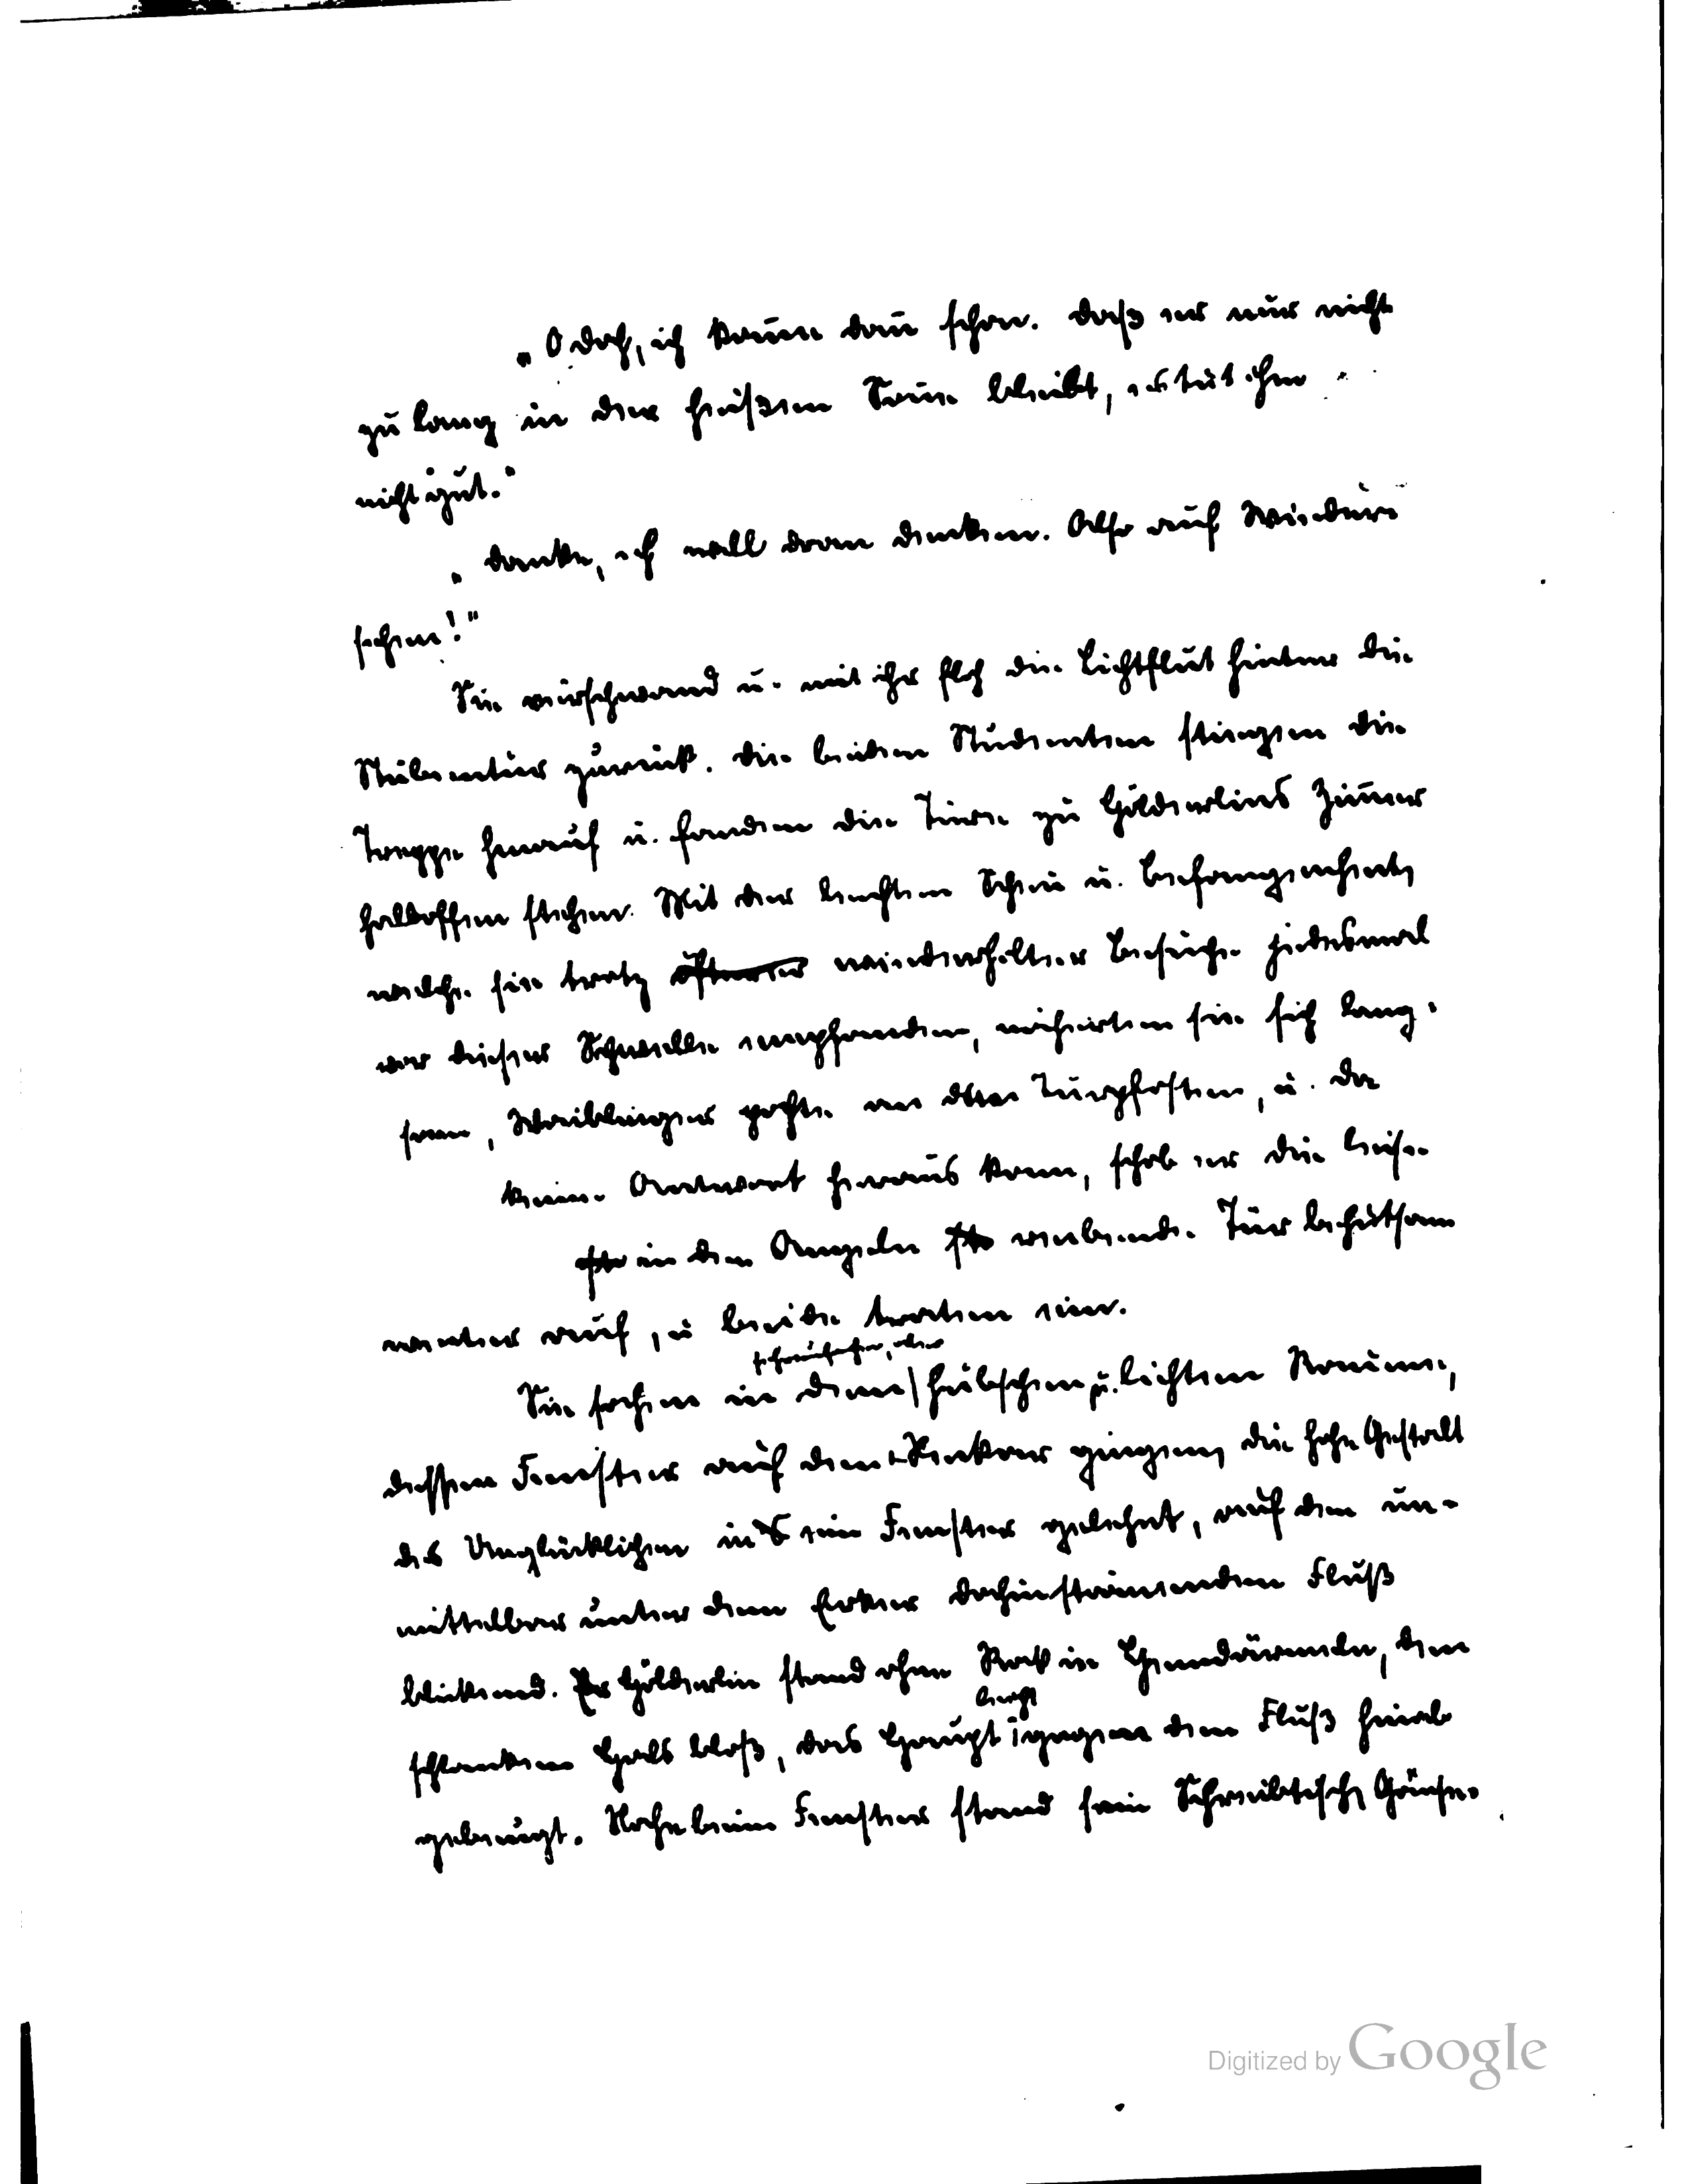 „O doch, ich komme dann schon. Daß er nur nicht
zu lang in der heißen Sonne bleibt, es tut ihm
nicht gut."
„Danke, ich will dran denken. Also auf Wieder-
sehen!"
Sie verschwand u. mit ihr floh die Lichtflut hinter die
Stubentür zurück. Die beiden Studenten stiegen die
Treppe hinauf u. fanden die Türe zu Hölderlins Zimmer
halboffen stehen. Mit der leichten Scheu u. Befangenheit,
welche sie trotz öfterer wiederholter Besuche jedesmal
vor dieser Schwelle empfanden, näherten sie sich lang-
sam, Waiblinger pochte an den Türpfosten, u. da
keine Antwort heraus kam, schob er die leise
in den Angeln reibende Tür behutsam
weiter auf, u. beide traten ein.
schmucklosen, aber
Sie sahen in dem hübschen u. lichten Raume,
dessen Fenster auf den Neckar gingen, die hohe Gestalt
des Unglücklichen in ein Fenster gelehnt, auf den un-
mittelbar unter dem Erker dahinströmenden Fluß
blickend. Er Hölderlin stand ohne Rock in Hemdärmeln, den
leicht
schlanken Hals bloß, das Haupt gegen den Fluß hinab
gebeugt. Nahe beim Fenster stand sein Schreibtisch, Gänse-
Digitized by Google